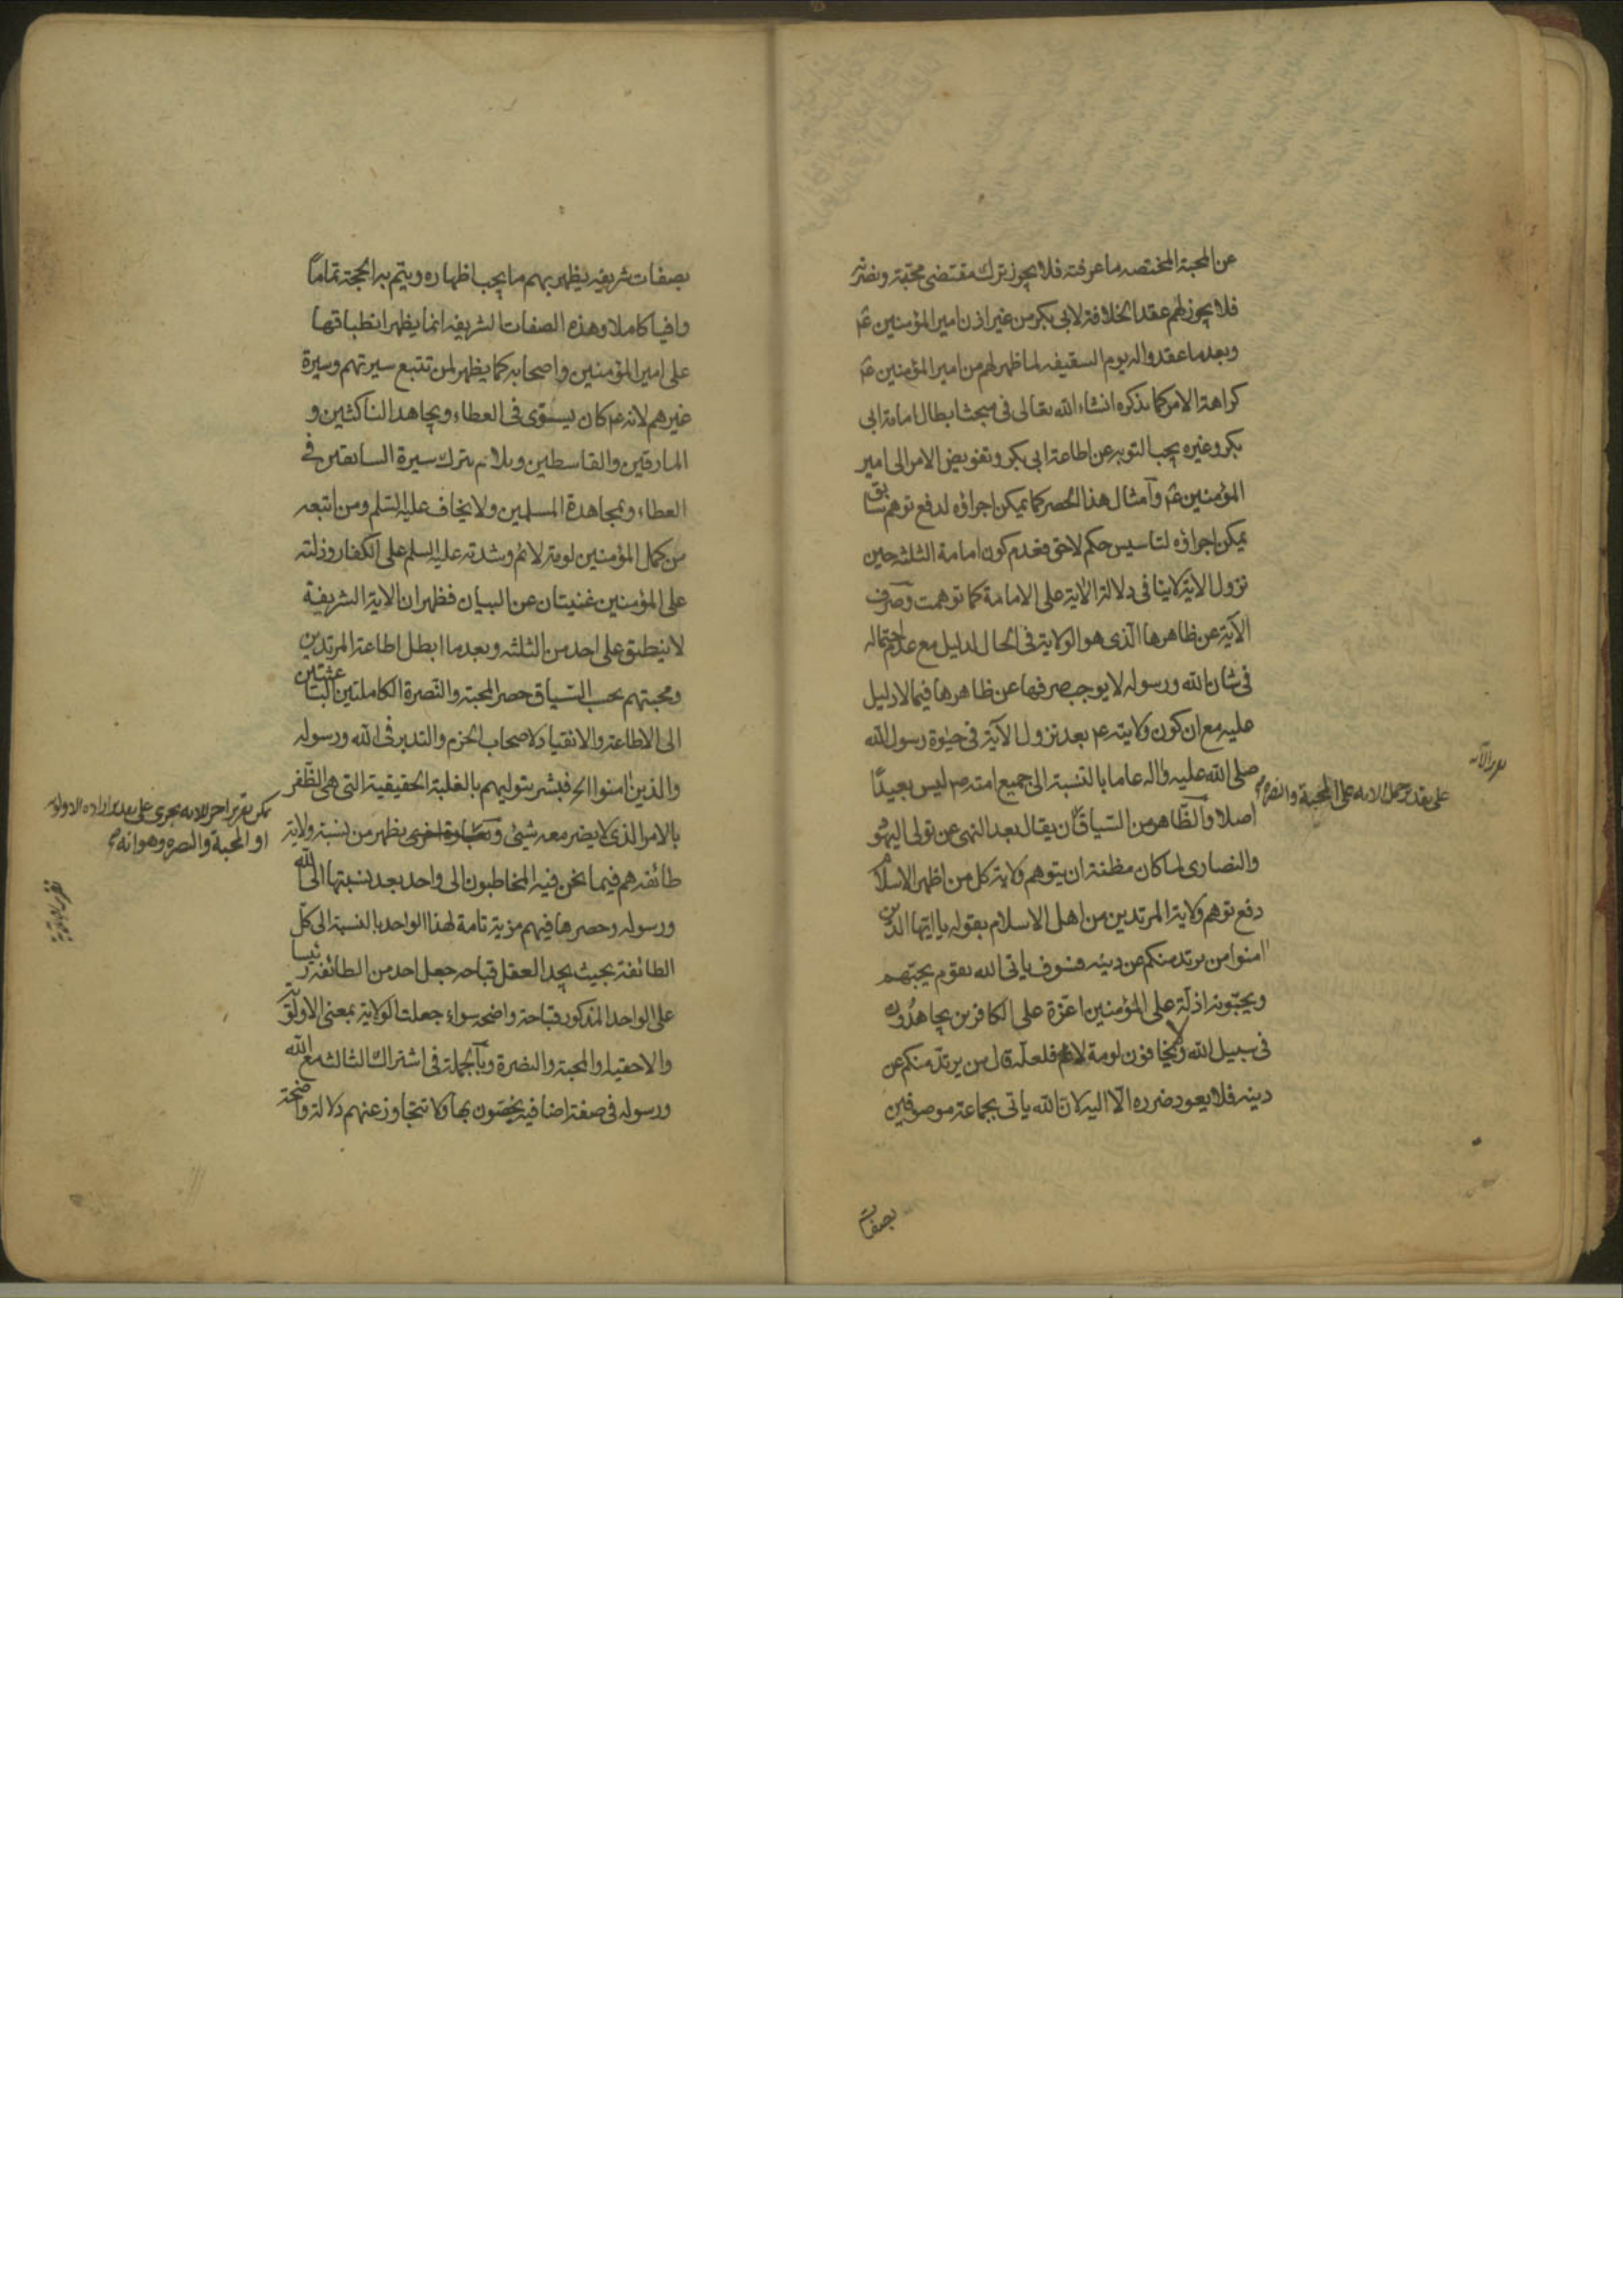 عن المحبة المختصه ما عرفته فلا يجوز ترك مقتضى محبته ونصرته
فلا يجوز لهم عقد الخلافة لابى بكر من غير اذن امير المؤمنين ع
وبعد ما عقدوا له يوم السقيفه لما ظهر لهم من امير المؤمنين ع
كراهة الامر كما نذكره انشاء الله تعالى فى مبحث ابطال امامة ابى
بكر وغيره يجب التوبه عن اطاعة ابى بكر وتفويض الامر الى امير
المؤمنين ع وامثال هذا الحصر كما يمكن اجراؤه لدفع توهم سابق
يمكن اجراؤه لتاسيس حكم لاحق فعدم كون امامة الثلثه حين
نزول الاية لاينافى دلالة الاية على الامامة كما توهمت وصرف
الآية عن ظاهرها الذى هو الولاية فى الحال لدليل مع عدم احتماله
فى شان الله ورسوله لا يوجب صرفها عن ظاهرها فيما لا دليل
عليه مع ان كون ولايته ع بعد نزول الآية فى حيوة رسول الله
صلى الله عليه واله عاما بالنسبة الى جميع امته ص ليس بعيدًا
على تقدير حمل الايه على المحبة والنصرة
اصلا والظاهر من السياق ان يقال بعد النهى عن تولى اليهود
والنصارى لما كان مظنة ان يتوهم ولاية كل من اظهر الاسلام
دفع توهم ولاية المرتدين من اهل الاسلام بقوله يا ايها الذين
امنوا من يرتد منكم عن دينه فسوف ياتى الله بقوم يحبهم
ويحبونه اذلة على المؤمنين اعزة على الكافرين يجاهدون
فى سبيل الله ولا يخافون لومة لائم فلعله قال من يرتد منكم عن
دينه فلا يعود ضرره الا اليه لان الله ياتى بجماعة موصوفين
بصفات
بصفات شريفه يظهر بهم ما يجب اظهاره ويتم به الحجة تمامًا
وافيا كاملا وهذه الصفات الشريفه انما يظهر انطباقها
على امير المؤمنين واصحابه كما يظهر لمن تتبع سيرتهم وسيرة
غيرهم لانه ع كان يسوى فى العطاء ويجاهد الناكثين و
المارقين والقاسطين ويلام بترك سيرة السابقين فى
العطاء وبمجاهدة المسلمين ولا يخاف عليه السلم ومن اتبعه
من كمل المؤمنين لومة لائم وشدته عليه السلم على الكفار وذلته
على المؤمنين غنيتان عن البيان فظهر ان الاية الشريفة
لا ينطبق على احد من الثلثه وبعد ما ابطل اطاعة المرتدين
ومحبتهم بحسب السياق حصر المحبة والنصرة الكاملتين الباعثتين
الى الاطاعة والانقياد لاصحاب الحزم والتدبر فى الله ورسوله
والذين امنوا الخ فبشر بتوليهم بالغلبة الحقيقية التى هى الظفر
بالامر الذى لا يضر معه شيئ وبعبارة اخرى يظهر من نسبة ولاية
يمكن تقرير اخر للايه يجرى على تقدير اراده الاولويه
او المحبة والنصره وهو انه
طائفه هم فيما نحن فيه المخاطبون الى واحد بعد نسبتها الى الله
ورسوله وحصرها فيهم مزية تامة لهذا الواحد بالنسبة الى كل
الطائفة بحيث يجد العقل قباحه جعل احد من الطائفة رئيسا
على الواحد المذكور قباحة واضحه سواء جعلت الولاية بمعنى الاولوية
والاحقيه او المحبة والنصرة وبالجملة فى اشتراك الثالث مع الله
ورسوله فى صفة اضافيه يخصون بها ولا تتجاوز عنهم دلالة واضحة